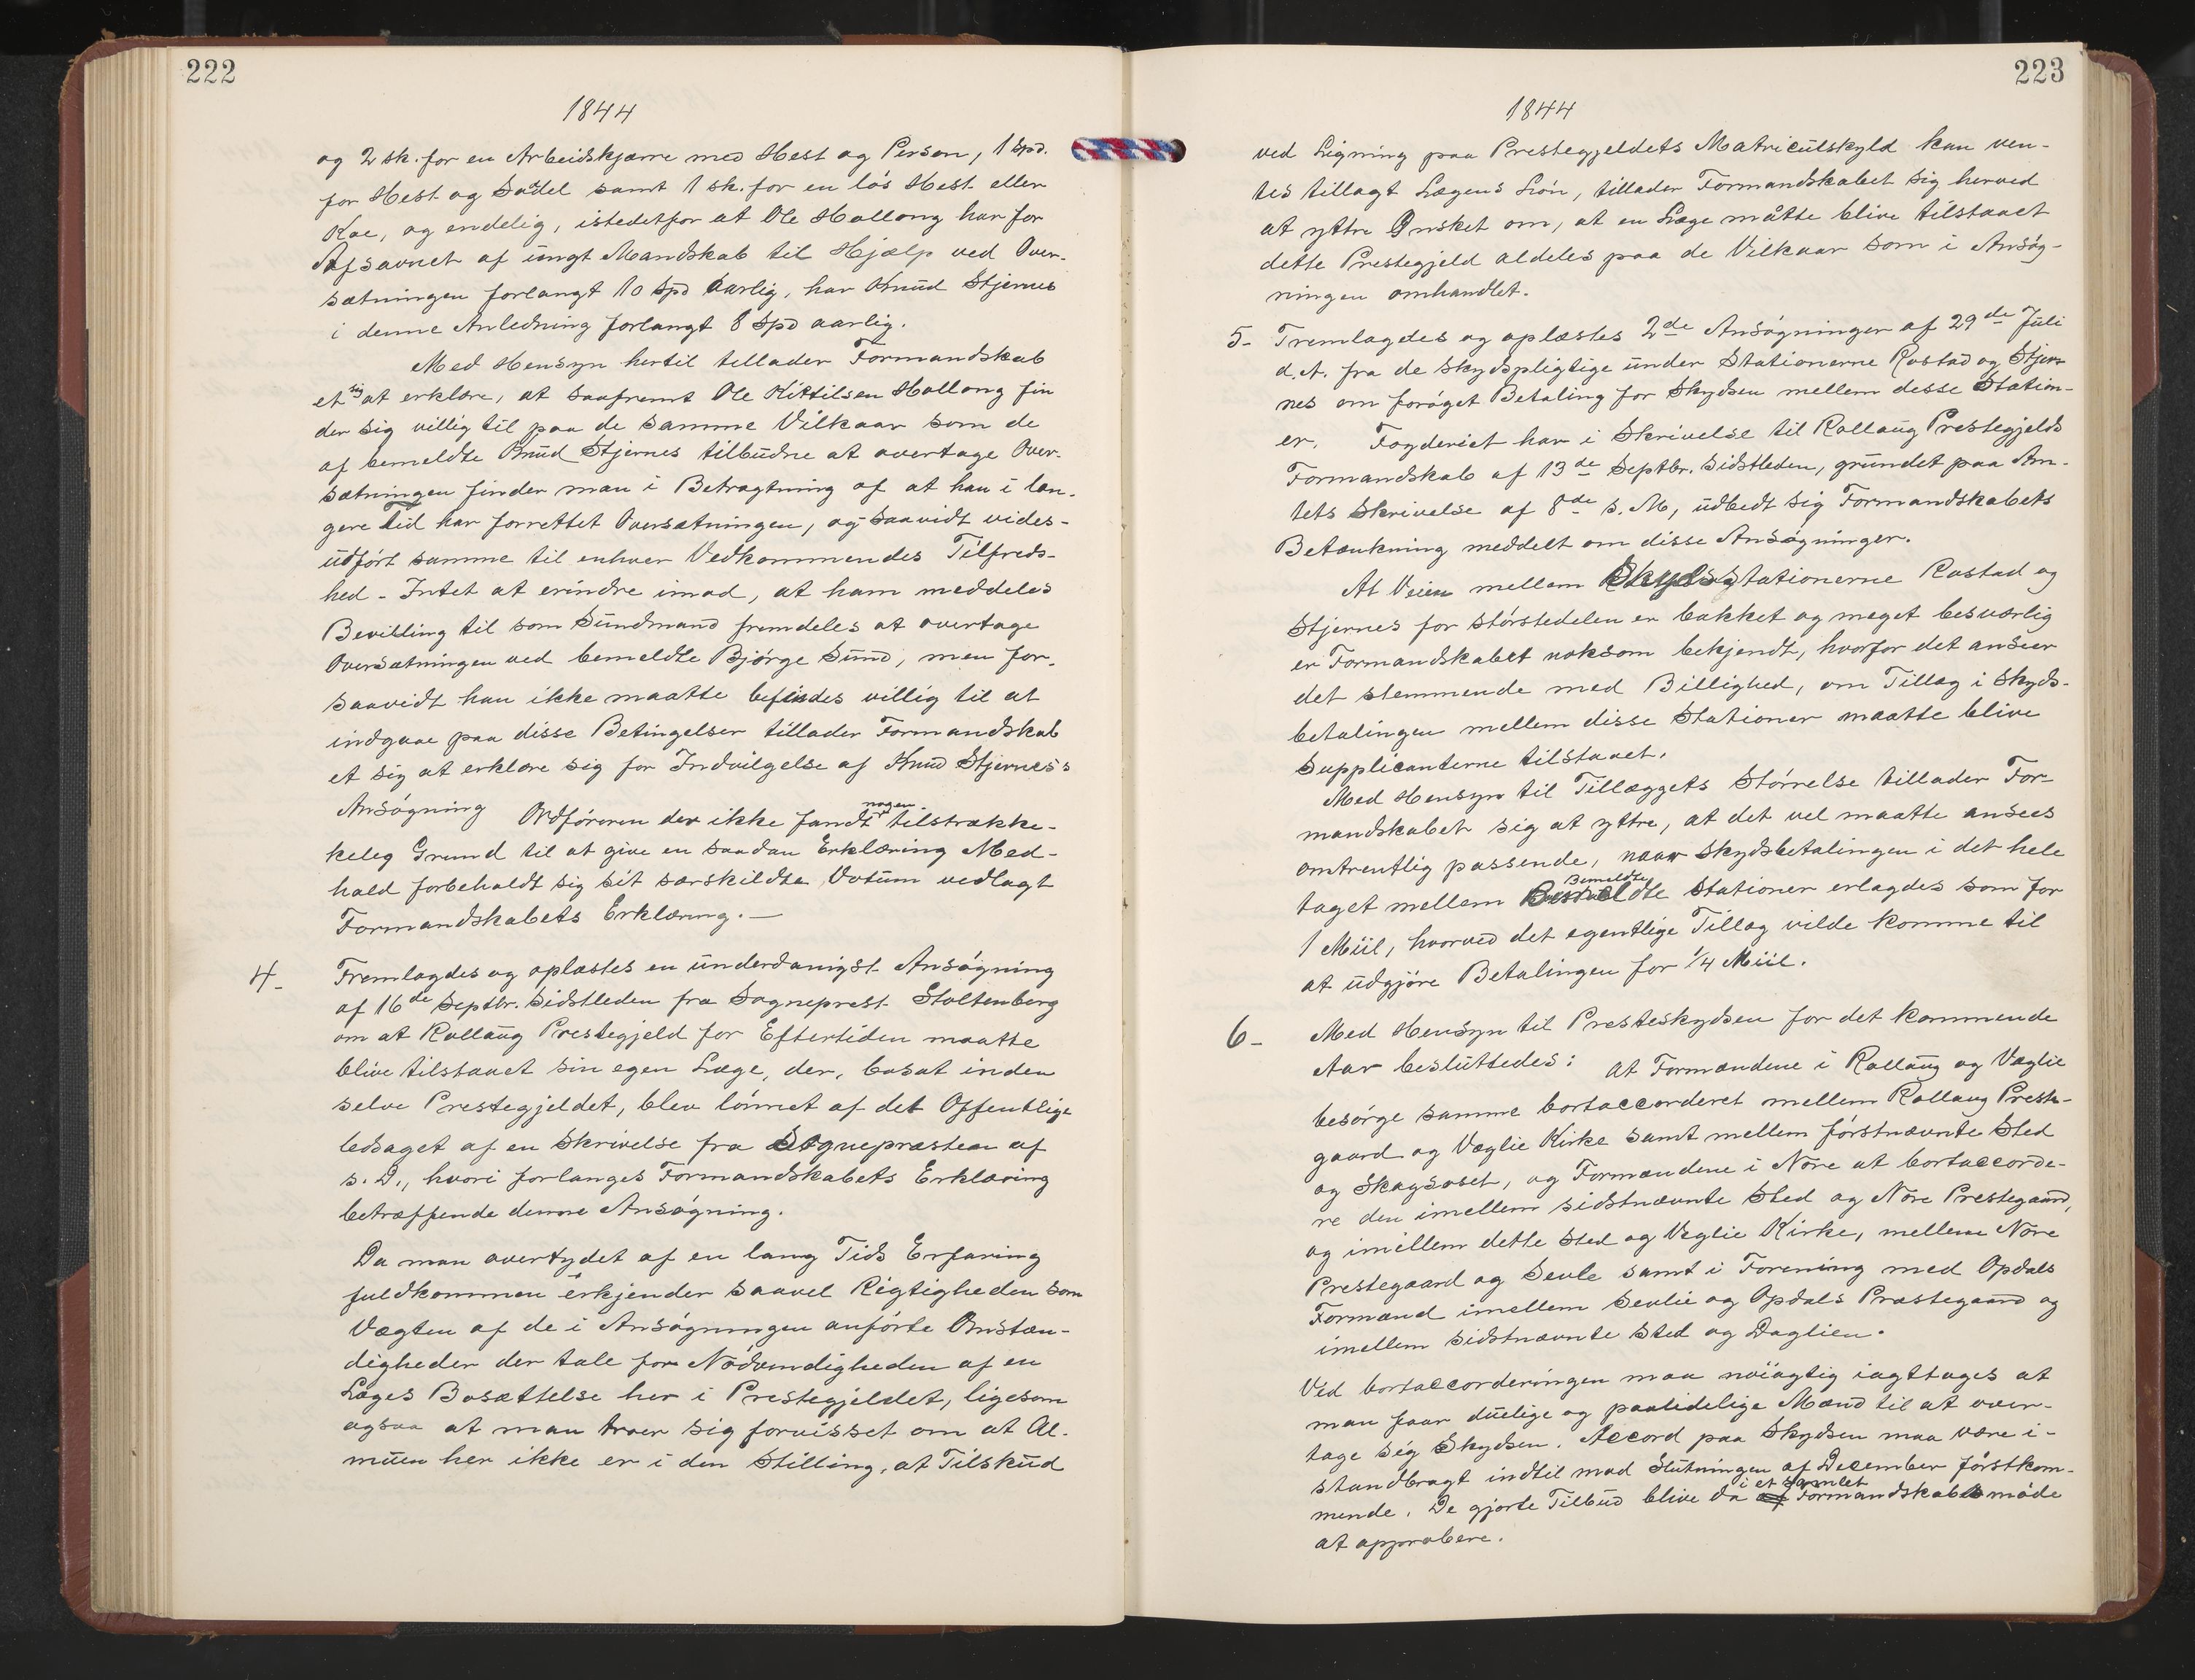 222
1844
og 2 sk. for en Arbeidskjærre med Hest og Person, 1 Spd.
for Hest og Sadel samt 1 sk. for en løs Hest eller
Koe, og endelig, istedetfor at Ole Hallong har for
Afsavnet af ungt Mandskab til Hjælp ved Over-
sætningen forlangt 10 Spd aarlig, har Knud Stjernes
i denne Anledning forlangt 8 Spd aarlig.
Med Hensyn hertil tillader Formandskab
et sig at erklære, at saafremt Ole Kittilsen Hallong fin
der sig villig til paa de samme Vilkaar som de
af bemeldte Knud Stjernes tilbudne at overtage Over-
sætningen finder man i Betragtning af at han i læn-
gere tid har forrettet Oversætningen, og saavidt vides -
udført samme til enhver Vedkommendes Tilfreds-
hed - Intet at erindre imod, at ham meddeles
Bevilling til som Sundmand fremdeles at overtage
Oversætningen ved bemeldte Bjørge Sund, men for-
saavidt han ikke maatte befindes villig til at
indgaae paa disse Betingelser tillader Formandskab
et sig at erklære sig for Indvilgelse af Knud Stjernes's
Ansøgning Ordføreren der ikke fandt nogen tilstrække-
keleg Grund til at give en saadan Erklæring Med-
hald forbeholdt sig sit særskildte Votum vedlagt
Formandskabets Erklæring. —
4- Fremlagdes og oplæstes en underdanigst Ansøgning
af 16de Septbr. sidstleden fra Sogneprest Stoltenberg
om at Rollaug Prestegjeld for Eftertiden maatte
blive tilstaaet sin egen Læge, der, bosat inden
selve Prestegjeldet, blev lønnet af det Offentlige
ledsaget af en Skrivelse fra Sognepræsten af
s. D., hvori forlanges Formandskabets Erklæring
betræffende denne Ansøgning.
Da man overtydet af en lang Tids Erfaring
fuldkommen erkjender saavel Rigtigheden som
Vægten af de i Ansøgningen anførte Omstæn-
digheder der tale for Nødvendigheden af en
Læges Bosættelse her i Prestegjeldet, ligesom
ogsaa at man troer sig forvisset om at Al-
muen her ikke er i den Stilling, at Tilskud
223
1844
ved Ligning paa Prestegjeldets Matriculskyld kan ven-
tes tillagt Lægens Løn, tillader Formandskabet sig herved
at yttre Ønsket om, at en Læge måtte blive tilstaaet
dette Prestegjeld aldeles paa de Vilkaar som i Ansøg-
ningen omhandlet.
5- Fremlagdes og oplæstes 2de Ansøgninger af 29de Juli
d. A. fra de skydspligtige under Stationerne Rostad og Stjer-
nes om forøget Betaling for Skydsen mellem desse Station-
er. Fogderiet har i Skrivelse til Rollaug Prestegjelds
Formandskab af 13de Septbr. sidstleden, grundet paa Am-
tets Skrivelse af 8de s. M, udbedt sig Formandskabets
Betænkning meddelt om disse Ansøgninger.
At Veien mellem Skydsstationerne Rostad og
Stjernes for størstedelen er bakket og meget besværlig
er Formandskabet noksom bekjendt, hvorfor det anseer
det stemmende med Billighed, om Tillæg i Skyds-
betalingen mellem disse Stationer maatte blive
Supplicanterne tilstaaet.
Med Hensyn til Tillæggets Størrelse tillader For-
mandskabet sig at yttre, at det vel maatte ansees
omtrentlig passende, naar Skydsbetalingen i det hele
taget mellem Bemeldte Stationer erlagdes som for
1 Miil, hvorved det egentlige Tillæg vilde komme til
at udgjøre Betalingen for 1/4 Miil.
6- Med Hensyn til Presteskydsen for det kommende
Aar besluttedes: at Formændene i Rollaug og Væglie
besørge samme bortaccorderet mellem Rollaug Preste-
gaard og Væglie Kirke samt mellem førstnævnte Sted
og Skagsoset, og Formændene i Nore at bortaccorde-
re den imellem sidstnævnte Sted og Nore Prestegaard,
og imellem dette Sted og Væglie Kirke, mellem Nore
Prestegaard og Sevle samt i Forening med Opdals
Formænd imellem Sevlie og Opdals Præstegaard og
imellem sidstnævnte Sted og Daglien.
Ved bortaccorderingen maa nøiagtig iagttages at
man faar duelige og paalidelige Mænd til at over-
tage sig Skydsen. Accord paa Skydsen maa være i-
standbragt indtil mod Slutningen af December førstkom-
mende. De gjorte Tilbud blive da i et samlet Formandskabsmøde
at approbere.